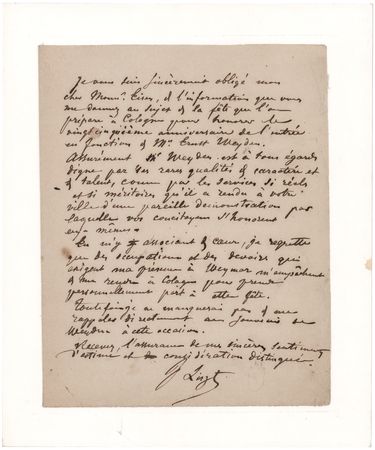 Je vous suis sincèrement obligé mon
cher Monsr. Eisen, de l'information que vous
me donnez au sujet de la fête que l'on
prépare à Cologne pour honorer le
vingtcinquième anniversaire de l'entrée
en fonctions de Mr. Ernst Weyden.
Assurément Mr Weyden est à tous égards
digne par ses rares qualités de caractère et
de talent, comme par les services si réels
et si méritoires qu'il a rendu à votre
ville d'une pareille démonstration par
laquelle vos concitoyens s'honorent
eux mêmes.
En m'y associant de cœur, je regrette
que des occupations et des devoirs qui
exigent ma présence à Weymar m'empêchent
de me rendre à Cologne pour prendre
personnellement part à cette fête.
Toutefois je ne manquerai pas de me
rappeler directement au souvenir de
Weyden à cette occasion.
Recevez, l'assurance de mes sincères sentiments
d'estime et de considération distinguée.
F Liszt